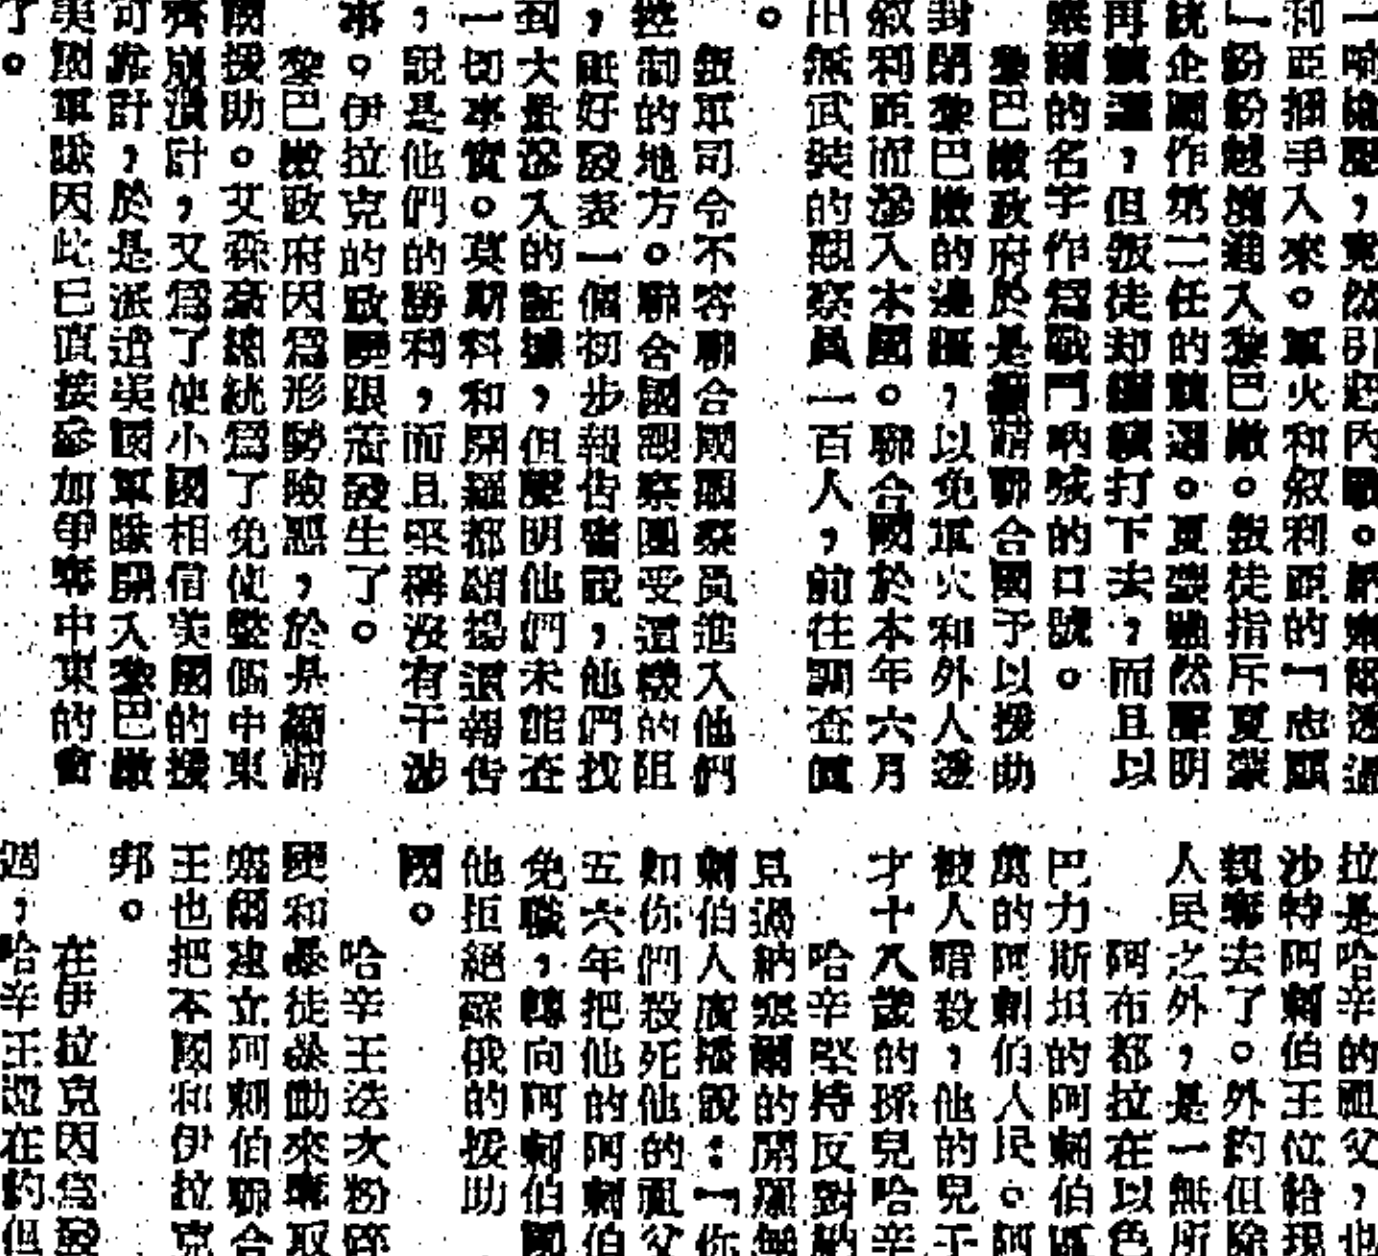 一响槍聲，竟然引起內戰。納塞爾透過
利亞插手入來。軍火和叙利亞的「志願
」紛紛越境進入黎巴嫩。叛徒指斥夏蒙
統企圖作第二任的競選。夏蒙雖然聲明
再競選，但叛徒却繼續打下去，而且以
塞爾的名字作爲戰鬥吶喊的口號。
黎巴嫩政府於是籲請聯合國予以援助
封閉黎巴嫩的邊疆，以免軍火和外人透
叙利亞而滲入本國。聯合國於本年六月
出無武裝的觀察員一百人，前往調查眞
。
叛軍司令不容聯合國觀察員進入他們
控制的地方。聯合國觀察團受這樣的阻
，祇好發表一個初步報告書說，他們找
到大量滲入的証據，但聲明他們未能查
一切事實。莫斯科和開羅都頌揚這報告
，說是他們的勝利，而且堅稱沒有干涉
事。伊拉克的政變跟着發生了。
黎巴嫩政府因爲形勢險惡，於是籲請
國援助。艾森豪總統爲了免使整個中東
齊崩潰計，又爲了使小國相信美國的援
可靠計，於是派遣美國軍隊開入黎巴嫩
美國軍隊因此已直接參加爭奪中東的會
了。
拉是哈辛的祖父，也
沙特阿剌伯王位給現
親奪去了。外約但除
人民之外，是一無所
阿布都拉在以色
巴力斯坦的阿剌伯區
萬的阿剌伯人民。阿
被人暗殺，他的兒子
才十八歲的孫兒哈辛
哈辛堅持反對納
見過納塞爾的開羅無
剌伯人廣播說：「你
如你們殺死他的祖父
五六年把他的阿剌伯
免職，轉向阿剌伯國
他拒絕蘇俄的援助
國。
哈辛王迭次粉碎
變和暴徒暴動來奪取
塞爾建立阿剌伯聯合
王也把本國和伊拉克
邦。
在伊拉克因爲發
週，哈辛王還在約但